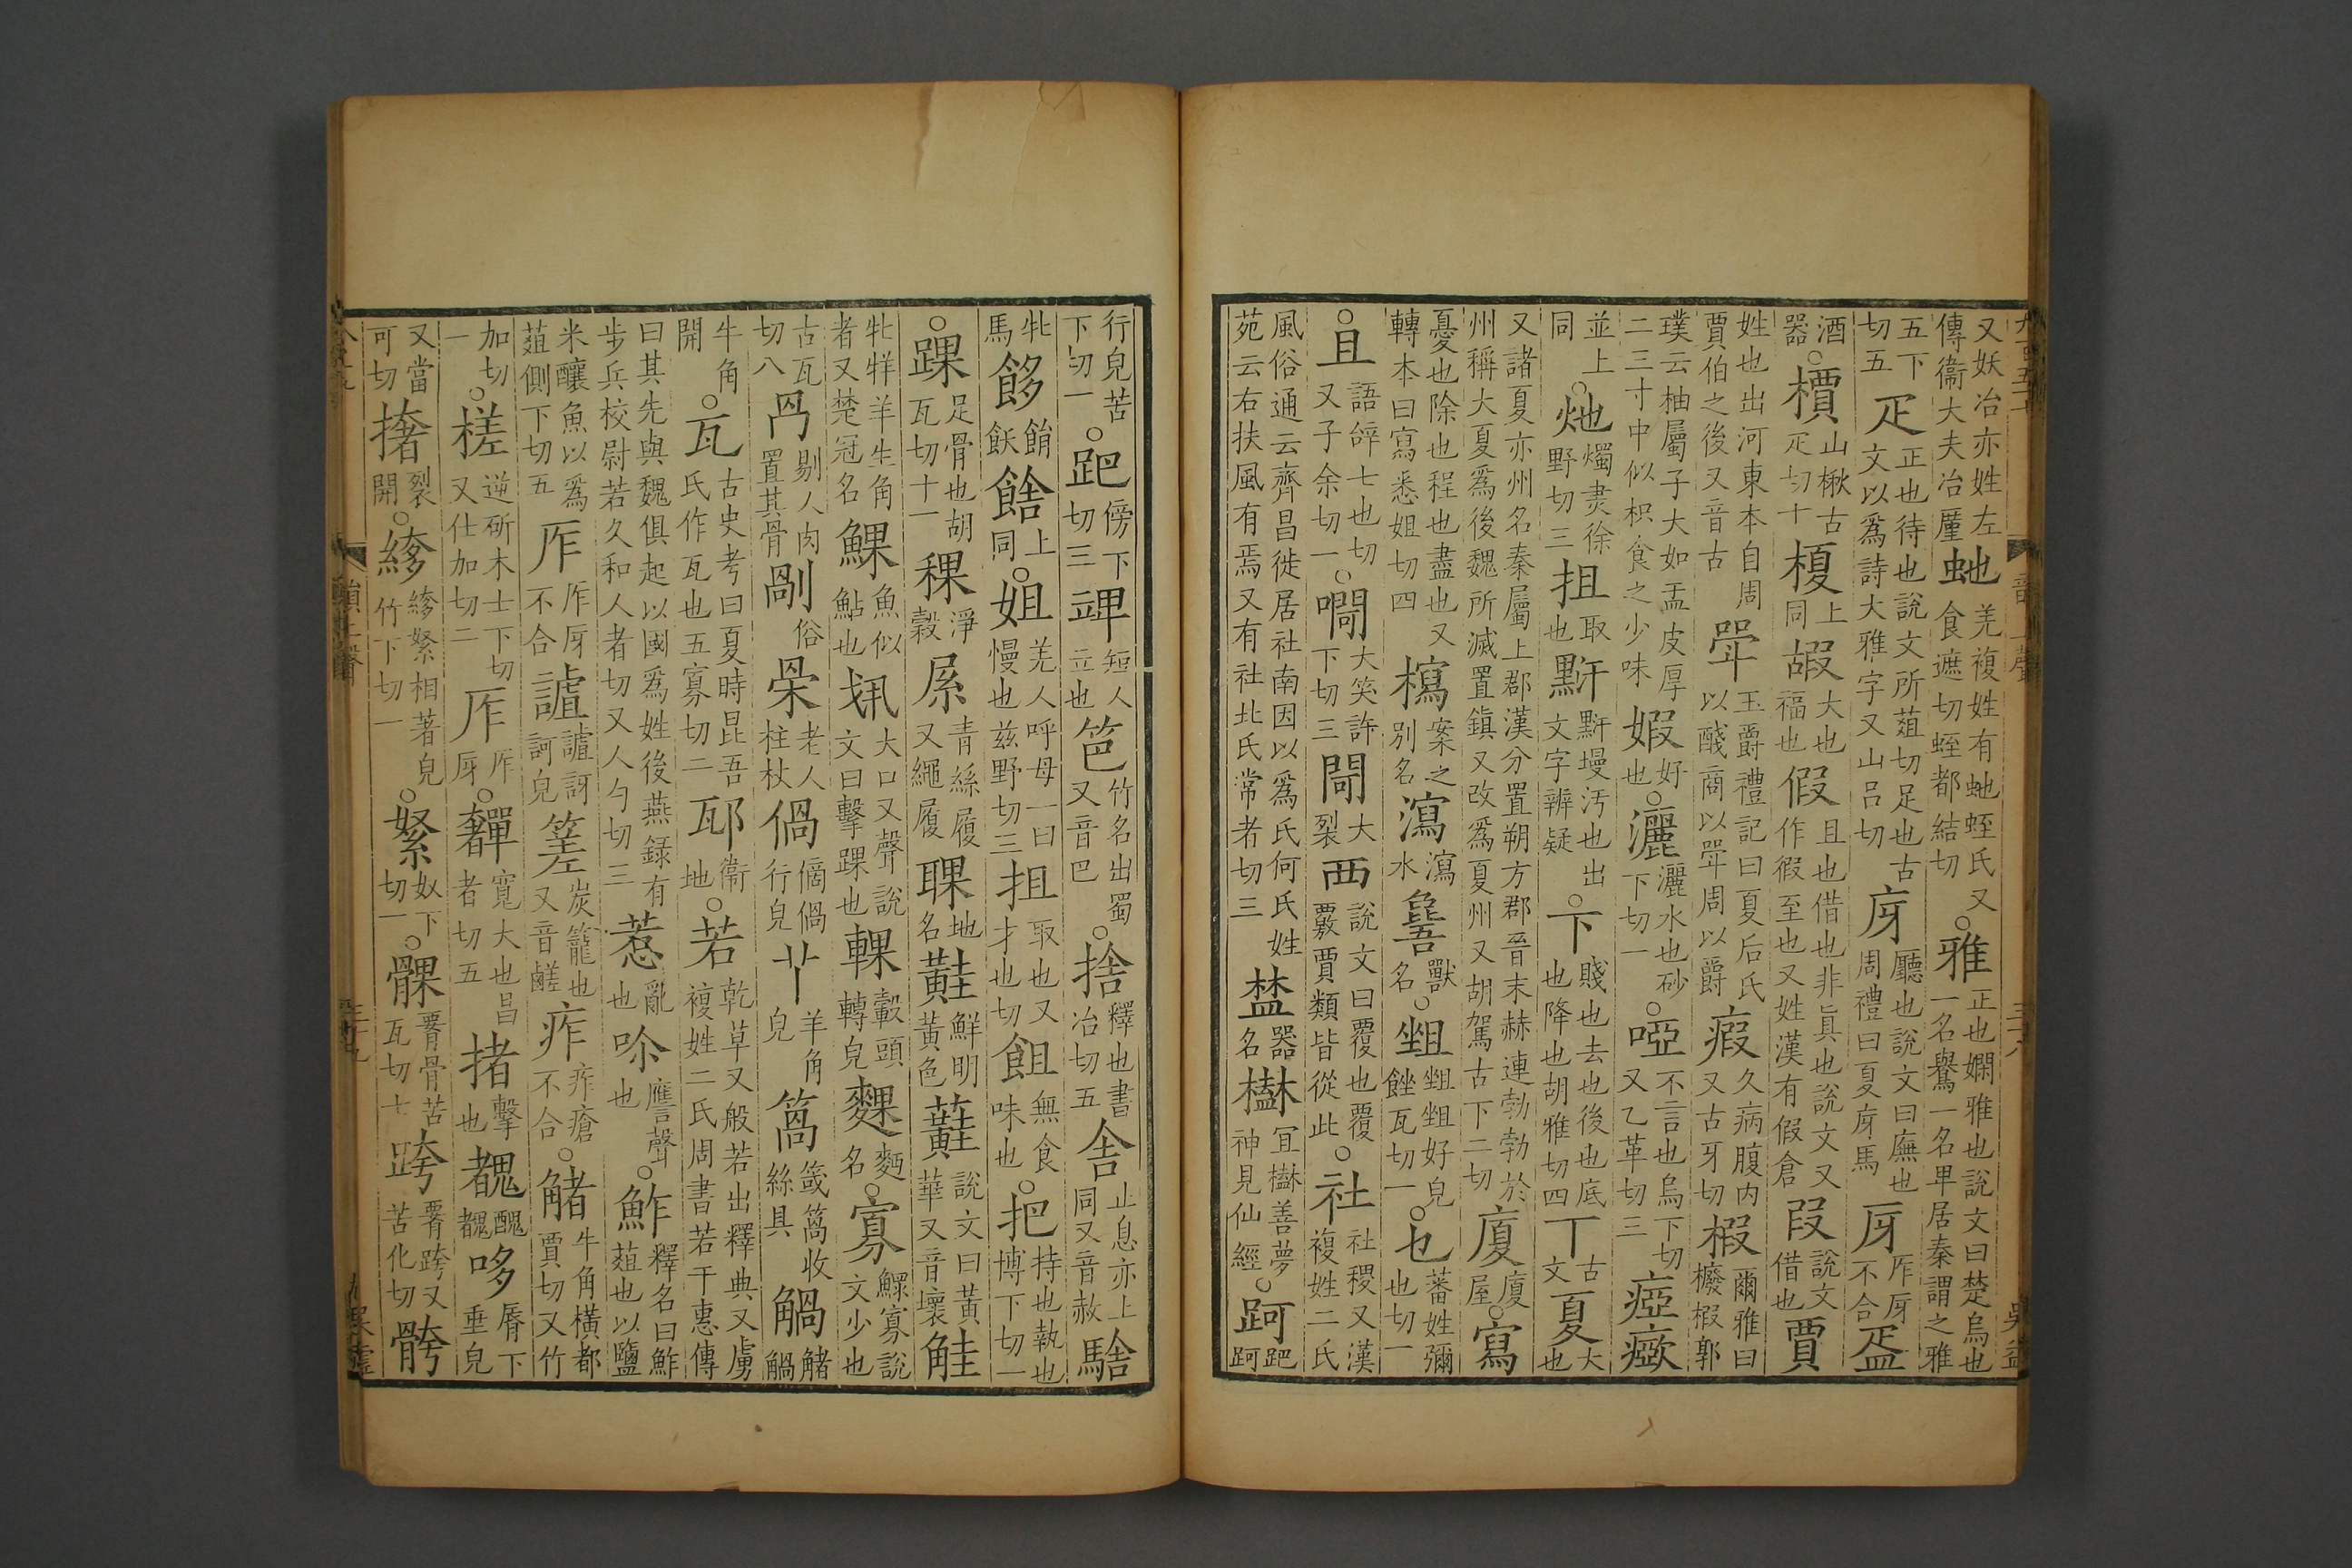 又妖冶亦姓左傳衞大夫冶廑 虵 羌複姓有虵蛭氏又食遮切蛭都結切 ○雅 正也嫻雅也說文曰楚烏也一名鸒一名卑居秦謂之雅
五下切五 疋 正也待也說文所葅切足也古文以爲詩大雅字又山呂切 庌 廳也說文曰廡也周禮曰夏庌馬 厊 厏厊不合 㿿
酒器 ○檟 山楸古疋切十 榎 上同 嘏 大也福也 假 且也借也非眞也說文又作徦至也又姓漢有假倉 叚 說文借也 賈
姓也出河東本自周賈伯之後又音古 斝 玉爵禮記曰夏后氏以醆商以斝周以爵 瘕 久病腹内又古牙切 椵 爾雅曰櫠椵郭
璞云柚屬子大如盂皮厚二三寸中似枳食之少味 婽 好也 ○灑 灑水也砂下切一 ○啞 不言也烏下切又乙革切三 瘂
並上同 ○灺 燭㶳徐野切三 抯 取也 䵟 䵟墁汚也出文字辨疑 ○下 賤也去也後也底也降也胡雅切四 丅 古文 夏 大也
又諸夏亦州名秦屬上郡漢分置朔方郡晉末赫連勃勃於州稱大夏爲後魏所滅置鎭又改爲夏州又胡駕古下二切 廈 廈屋 ○寫
憂也除也程也盡也又轉本曰寫悉姐切四 㰐 案之別名 瀉 瀉水 獸名 ○䂳 好皃銼瓦切一 ○乜 蕃姓彌也切一
○且 語辝七也切又子余切一 ○㗿 大笑許下切三 閜 大裂 襾 說文曰覆也覆覈賈類皆從此 ○社 社稷又漢複姓二氏
風俗通云齊昌徙居社南因以爲氏何氏姓苑云右扶風有焉又有社北氏常者切三 器名 冝善夢神見仙經 ○跒 䟦跒
行皃苦下切一 ○跁 傍下切三 𥏪 短人立也 笆 竹名出蜀又音巴 ○捨 釋也書冶切五 舍 止息亦上同又音赦 騇
牝馬 䬷 餙䬪 䬷 上同 ○姐 羌人呼母一曰慢也兹野切三 抯 取也又才也切 飷 無食味也 ○把 持也執也博下切一
○踝 足骨也胡瓦切十一 稞 淨穀 𡲣 青絲履又繩履 䀨 地名 黊 鮮明黃色 蘳 說文曰黃華又音壞 觟
牝牂羊生角者又楚冠名 鯶 魚似鮎也 㧐 大口又聲說文曰擊踝也 輠 轂頭轉皃 䴹 麪名 ○寡 鰥寡說文少也
古瓦切八 冎 剔人肉置其骨 剮 俗 𠁥 老人柱杖 㗻 㗻行皃 𦫳 羊角皃 簻 䈅簻收絲具 䚴 䚴
牛角開 ○瓦 古史考曰夏時昆吾氏作瓦也五寡切二 邷 衞地 ○若 乾草又般若出釋典又虜複姓二氏周書若干惠傳
曰其先與魏俱起以國爲姓後燕録有步兵校尉若久和人者切又人勺切三 惹 亂也 喏 應聲也 ○鮓 釋名曰鮓葅也以鹽
米釀魚以爲葅側下切五 厏 厏厊不合 䜅 䜅訝訶皃 䇪 炭籠也又音䤘 痄 痄瘡不合 ○䐗 牛角橫都賈切又竹
加切一 ○槎 逆斫木士下切又仕加切二 厏 厏厊 ○奲 寬大也昌者切五 撦 擊也 䰩 醜䰩 哆 脣下垂皃
又當可切 撦 裂開 ○縿 縿䋈相著皃竹下切一 ○䋈 奴下切一 ○髁 𩪗骨苦瓦切七 跨 𩪗跨又苦化切 骻